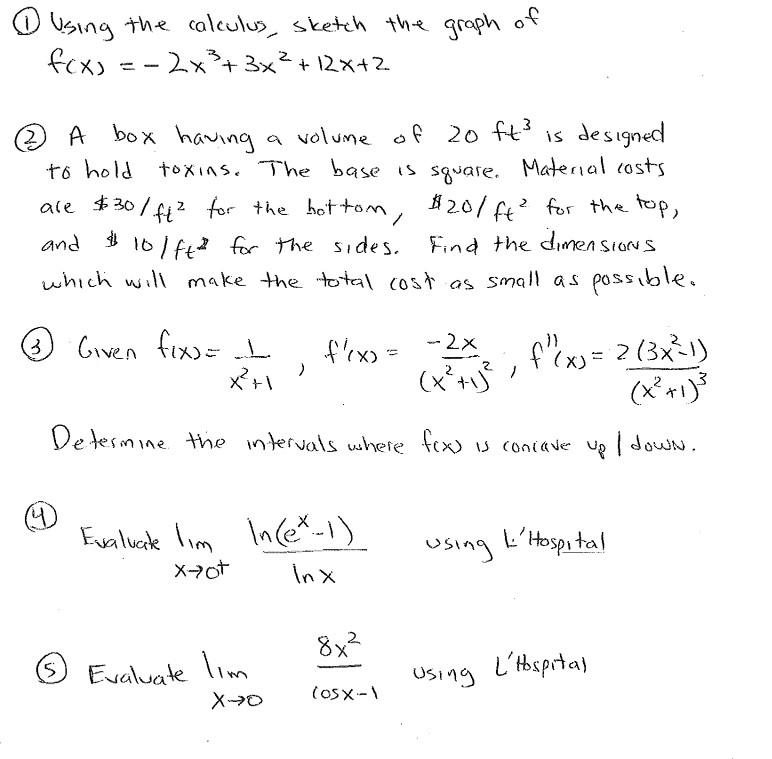 ① Using the calculus, sketch the graph of
f(x) = -2x³ + 3x² + 12x + 2
② A box having a volume of 20 ft³ is designed
to hold toxins. The base is square. Material costs
are $30/ft² for the bottom, $20/ft² for the top,
and $10/ft² for the sides. Find the dimensions
which will make the total cost as small as possible.
③ Given f(x) = 1/(x²+1), f'(x) = -2x/(x²+1)², f''(x) = 2(3x²-1)/(x²+1)³
Determine the intervals where f(x) is concave up / down.
④ Evaluate lim x→0⁺ ln(eˣ-1)/ln x using L'Hospital
⑤ Evaluate lim x→0 8x²/(cosx-1) using L'Hospital